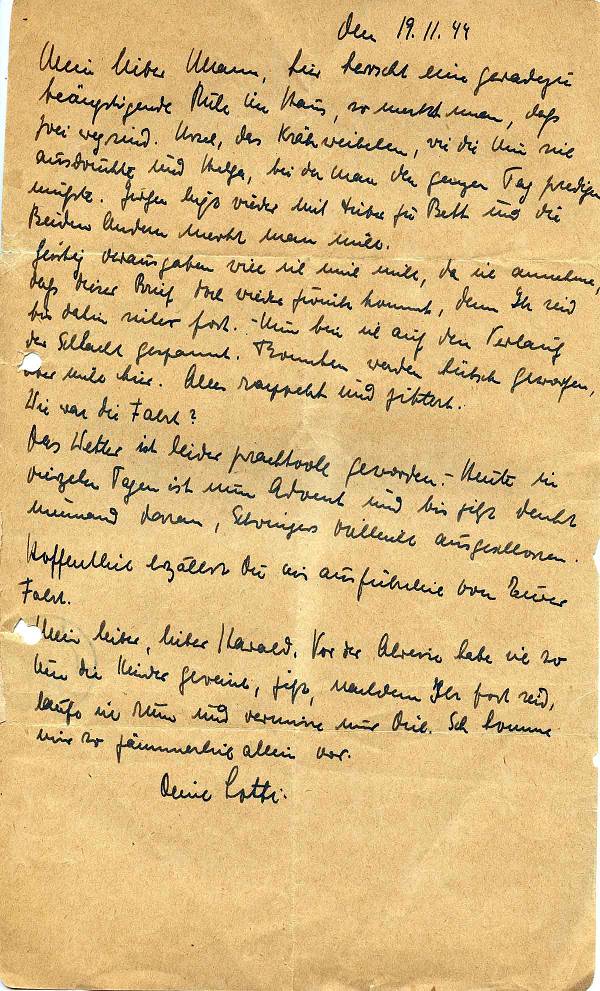 den 19.11.44
Mein lieber Mann, hier herrscht eine geradezu
beängstigende Ruhe im Haus, so merkt man, daß
zwei weg sind. Ursel, das wie die sie
ausdrückte und Helga, bei der man den ganzen Tag predigen
mußte. Jürgen liegt wieder mit Fieber zu Bett und die
Beiden Andern merkt man nicht.
Geistig verausgaben will ich mich nicht, da ich annehme,
daß dieser Brief doch wieder zurück kommt, denn Ihr seid
bis dahin sicher fort. - Nun bin ich auf den Verlauf
der Schlacht gespannt. Bomben werden hübsch geworfen,
aber nicht hier. Alles rappelt und zittert.
Wie war die Fahrt?
Das Wetter ist leider prachtvoll geworden. - Heute in
vierzehn Tagen ist nun Advent und bis jetzt denkt
niemand daran, Schwingers vielleicht ausgeschlossen.
Hoffentlich erzählst Du uns ausführlich von Eurer
Fahrt.
Mein lieber, lieber Harald. Vor der Abreise habe ich so
um die Kinder geweint, jetzt, nachdem Ihr fort seid,
laufe ich rum und vermisse nur Dich. Ich komme
mir so jämmerlich allein vor.
Deine Lotti.